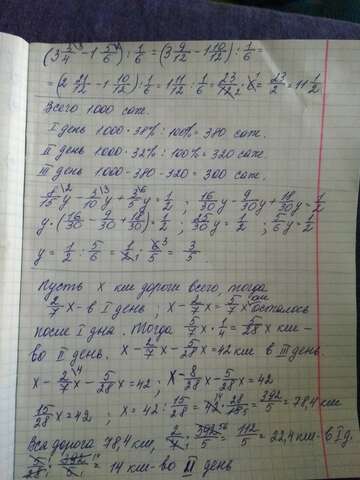 (3 3/4 - 1 5/6) : 1/6 = (3 9/12 - 1 10/12) : 1/6 =
= (2 21/12 - 1 10/12) : 1/6 = 1 11/12 : 1/6 = 23/12 · 6 = 23/2 = 11 1/2
Всего 1000 саж.
I день 1000 · 38% : 100% = 380 саж.
II день 1000 · 32% : 100% = 320 саж.
III день 1000 - 380 - 320 = 300 саж.
8/15 y - 3/10 y + 3/5 y = 1/2 ; 16/30 y - 9/30 y + 18/30 y = 1/2
y · (16/30 - 9/30 + 18/30) = 1/2 ; 25/30 y = 1/2 ; 5/6 y = 1/2
y = 1/2 : 5/6 = 1/2 · 6/5 = 3/5
Пусть x км дороги всего, тогда
2/7 x - в I день ; x - 2/7 x = 5/7 x км осталось
после I дня. Тогда 5/7 x · 1/4 = 5/28 x км -
во II день. x - 2/7 x - 5/28 x = 42 км в III день.
x - 2/7 x - 5/28 x = 42 ; x - 8/28 x - 5/28 x = 42
15/28 x = 42 ; x = 42 : 15/28 = 42 · 28/15 = 392/5 = 78,4 км
Вся дорога 78,4 км, 2/7 · 392/5 = 112/5 = 22,4 км - в I д.
5/28 · 392/5 = 14 км - во II день